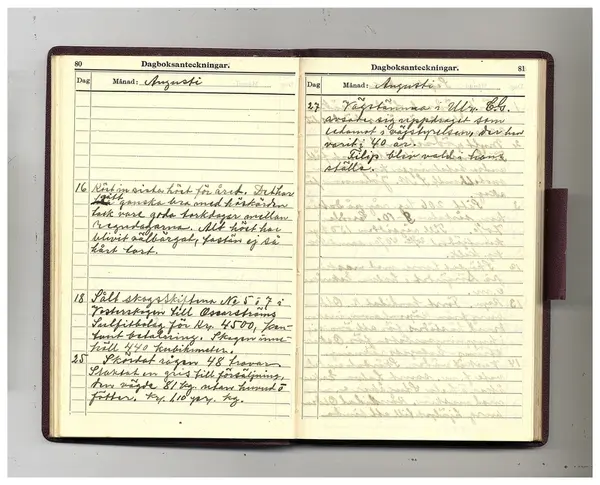 80
Dagboksanteckningar.
Dag
Månad: Augusti
16 Kört in sista höet för året. Det har
gått ganska bra med höskörden
tack vare goda torkdagar mellan
regndagarna. Allt höet har
blivit välbärgat, fastän ej så
hårt tort.
18. Sålt skogsskiftena No 5 i 7 i
till Oscarströms
Sulfitbolag för Kr. 4500, kon-
tant betalning. Skogen inne-
höll 440 kubikmeter.
25. Skördat rågen 48 travar.
Slaktat en gris till försäljning,
den vägde 81 kg utan huvud o
fötter. Kr. 1.10 pr. kg.
Dagboksanteckningar.
81
Dag
Månad: Augusti
27 Vägstämma i Ulv. C.G.
sig uppdraget som
i vägstyrelsen, där han
varit i 40 år.
Filip blev vald i hans
ställe.